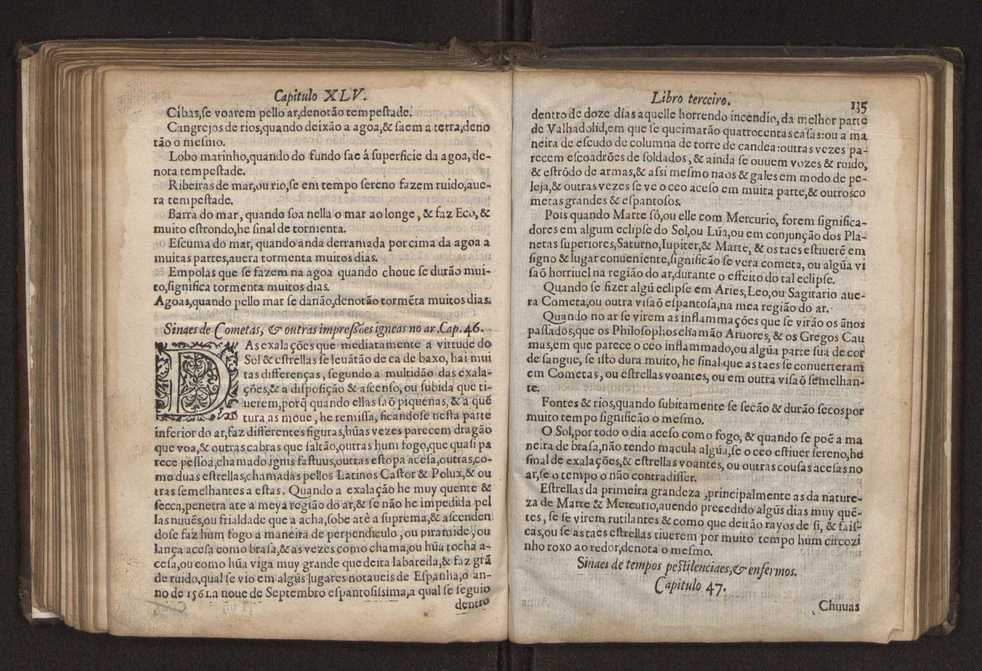 Capitulo XLV.
Cibas, se voarem pello ar, denotão tempestade.
Cangrejos de rios, quando deixão a agoa, & saem a terra, deno
tão o mesmo.
Lobo marinho, quando do fundo sae à superficie da agoa, de-
nota tempestade.
Ribeiras de mar, ou rio, se em tempo sereno fazem ruido, aue-
ra tempestade.
Barra do mar, quando soa nella o mar ao longe, & faz Eco, &
muito estrondo, he sinal de tormenta.
Escuma do mar, quando anda derramada por cima da agoa a
muitas partes, auera tormenta muitos dias.
Empolas que se fazem na agoa quando choue se durão mui-
to, significa tormenta muitos dias.
Agoas, quando pello mar se danão, denotão tormẽta muitos dias.
Sinaes de Cometas, & outras impressões igneas no ar. Cap. 46.
DAs exalações que mediatamente a virtude do
Sol & estrellas se leuãtão de ca de baxo, hai mui
tas differenças, segundo a multidão das exala-
ções, & a disposição & ascenso, ou subida que ti-
uerem, porq̃ quando ellas saõ piquenas, & a quẽ
tura as moue, he remissa, ficandose nesta parte
inferior do ar, faz differentes figuras, hũas vezes parecem dragão
que voa, & outras cabras que saltão, outras hum fogo, que quasi pa
rece pessoa, chamado ignis fastuus, outras estopa acesa, outras, co-
mo duas estrellas, chamadas pellos Latinos Castor & Polux, & ou
tras semelhantes a estas. Quando a exalação he muy quente &
secca, penetra ate a meya região do ar, & se não he impedida pel
las nuuẽs, ou frialdade que a acha, sobe atè a suprema, & ascenden
dose faz hum fogo a maneira de perpendiculo, ou piramide, ou
lança acesa como brasa, & as vezes como chama, ou hũa tocha a-
cesa, ou como hũa viga muy grande que deita labareda, & faz grã
de ruido, qual se vio em algũs lugares notaueis de Espanha, o an-
no de 1561. a noue de Septembro espantosissima, a qual se seguio
dentro
Libro terceiro.
135
dentro de doze dias aquelle horrendo incendio, da melhor parte
de Valhadolid, em que se queimarão quatrocenta casas: ou a ma
neira de escudo de columna de torre de candea: outras vezes pa-
recem escoadrões de soldados, & ainda se ouuem vozes & ruido,
& estrõdo de armas, & assi mesmo naos & gales em modo de pe-
leja, & outras vezes se ve o ceo aceso em muita parte, & outros co
metas grandes & espantosos.
Pois quando Marte sò, ou elle com Mercurio, forem significa-
dores em algum eclipse do Sol, ou Lũa, ou em conjunção dos Pla-
netas superiores, Saturno, Iupiter, & Marte, & os taes estiuerẽ em
signo & lugar conueniente, significão se vera cometa, ou algũa vi
saõ horriuel na região do ar, durante o effeito do tal eclipse.
Quando se fizer algũ eclipse em Aries, Leo, ou Sagitario aue-
ra Cometa, ou outra visaõ espantosa, na mea região do ar.
Quando no ar se virem as inflammações que se virão os ãnos
passados, que os Philosophos chamão Aruores, & os Gregos Cau
mus, em que parece o ceo inflammado, ou algũa parte sua de cor
de sangue, se isto dura muito, he sinal que as taes se conuerteram
em Cometas, ou estrellas voantes, ou em outra visaõ semelhan-
te.
Fontes & rios, quando subitamente se secão & durão secos por
muito tempo significão o mesmo.
O Sol, por todo o dia aceso como fogo, & quando se poẽ a ma
neira de brasa, não tendo macula algũa, se o ceo estiuer sereno, he
sinal de exalações, & estrellas voantes, ou outras cousas acesas no
ar, se o tempo o não contradisser.
Estrellas da primeira grandeza, principalmente as da nature-
za de Marte & Mercurio, auendo precedido algũs dias muy quẽ-
tes, se se virem rutilantes & como que deitão rayos de si, & fais-
cas, ou se as taes estrellas tiuerem por muito tempo hum circozi
nho roxo ao redor, denota o mesmo.
Sinaes de tempos pestilenciaes, & enfermos.
Capitulo 47.
Chuuas